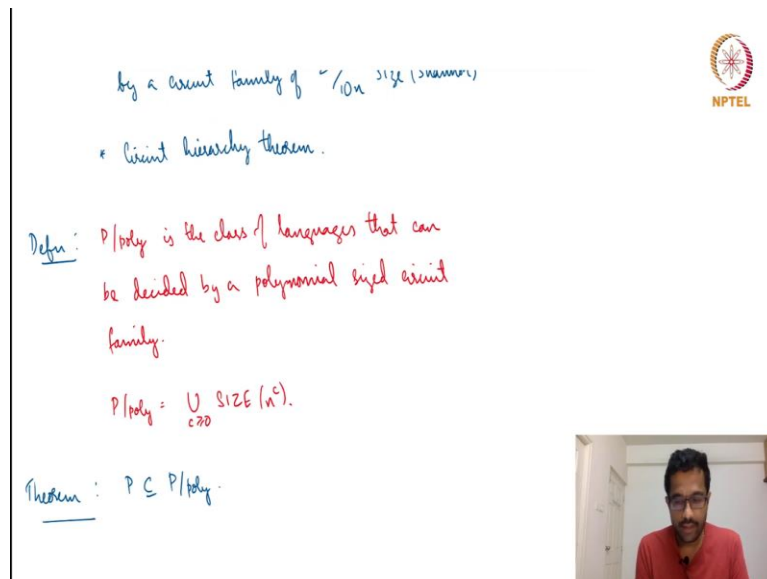 by a circuit family of /10n size (Shannon)
NPTEL
* Circuit hierarchy theorem.
Defn: P/poly is the class of languages that can
be decided by a polynomial sized circuit
family.
P/poly = ⋃ SIZE (n^c).
c≥0
Theorem: P ⊆ P/poly.